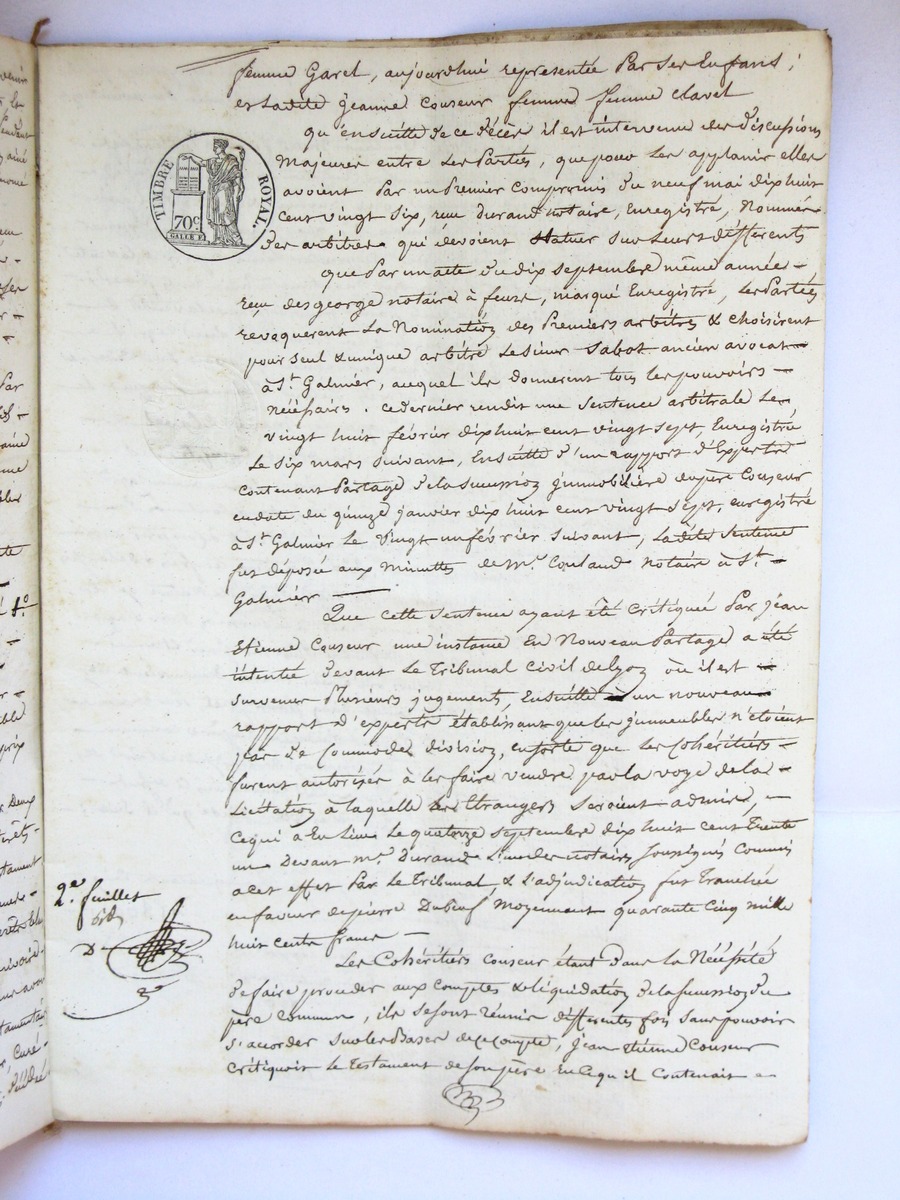 femme Garel, aujourdhui representée Par ses Enfans ;
et Ladite jeanne Couseur femme femme Clavel
qu'ensuitte de ce décès il est intervenu des discussions
Majeures entre Les Parties, que pour les applanir elles
avoient Par un Premier Compromis du neuf mai dix huit
Cent vingt Six, reçu durand notaire, Enregistré, Nommés
Des arbitres qui devoient Statuer Sur Leurs différents
que Par un acte du dix septembre même année
reçu desgeorge notaire à feurs, marqué Enregistré, Les Parties
revoquerent La Nomination des Premiers arbitres & choisirent
pour Seul & unique arbitre Le Sieur Sabot ancien avocat
à St. Galmier, auquel ils donnerent tous les pouvoirs
Néçéssaires. ce dernier rendit une Sentence arbitrale Le
vingt huit février dix huit cent vingt sept, Enregistré
Le six mars suivant, Ensuitte d'un rapport d'Experts
Contenant Partage de la succession jmmobilière du père Couseur
en date du quinze janvier dix huit cent vingt sept, enregistré
à St. Galmier Le vingt un février suivant, Ladite Sentence
fut déposée aux Minuttes de Mr. Coulaud Notaire à St.
Galmier
Que cette Sentence ayant été Critiquée Par jean
Etienne Couseur une instance En Nouveau Partage a été
intentée devant Le Tribunal Civil de Lyon où il est
Survenu Plusieurs jugements, Ensuitte un nouveau
rapport d'experts établissant que les jmmeubles n'étoient
pas de Commode division, ensorte que Les Cohéritiers
furent autorisés à les faire vendre par la voye de la
Licitation à laquelle les Etrangers Seroient admis,
Ce qui a Eu Lieu Le quatorze Septembre dix huit Cent Trente
un Devant Mr. Durand L'un des Notaires Soussignés Commis
a cet effet Par Le Tribunal, & L'adjudication fut Tranchée
en faveur de pierre Dubeuf Moyennant quarante Cinq Mille
huit Cents francs
Les Cohéritiers Couseur étant Dans La Néçéssité
De faire proceder aux Comptes & Liquidation de la Succession du
père Commun, ils se sont réunir differentes fois sans pouvoir
s'accorder Sur les Bases de ce compte ; jean Etienne Couseur
critiquoit le Testament de son père En ce qu'il Contenait
TIMBRE ROYAL.
70c.
GALLE F.
2e. feuillet
D
1°